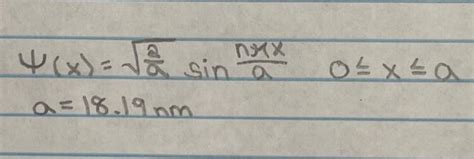 Ψ(x) = √(2/a) sin nπx/a 0 ≤ x ≤ a
a = 18.19 nm